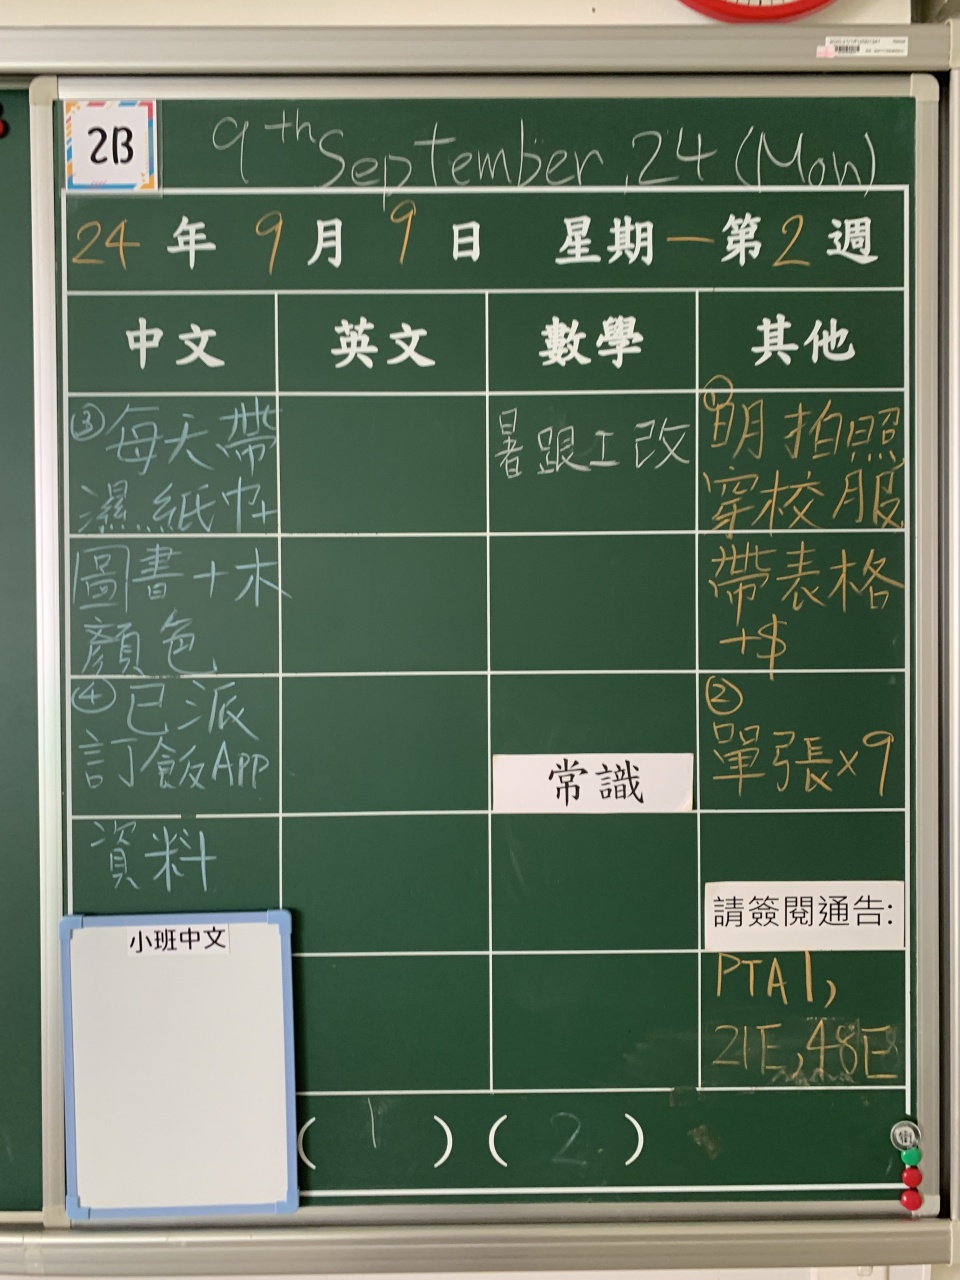 2B
9th September, 24 (Mon)
24 年 9 月 9 日 星期一 第 2 週
中文 英文 數學 其他
③ 每天帶
濕紙巾+
圖書+木
顏色
④ 已派
訂飯APP
資料
暑跟工改
常識
① 明拍照
穿校服
帶表格
+$
②
單張×9
請簽閱通告:
PTA1,
21E,48E
小班中文
( 1 ) ( 2 )